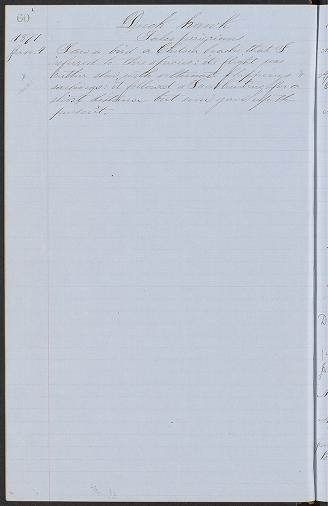 60
Duck hawk
Falco peregrinus
1871
Jan. 9 I saw a bird a beach that I
referred to this species: its flight was
rather slow with flappings &
sailings: it followed a for a
short distance but soon gave up the
pursuit.